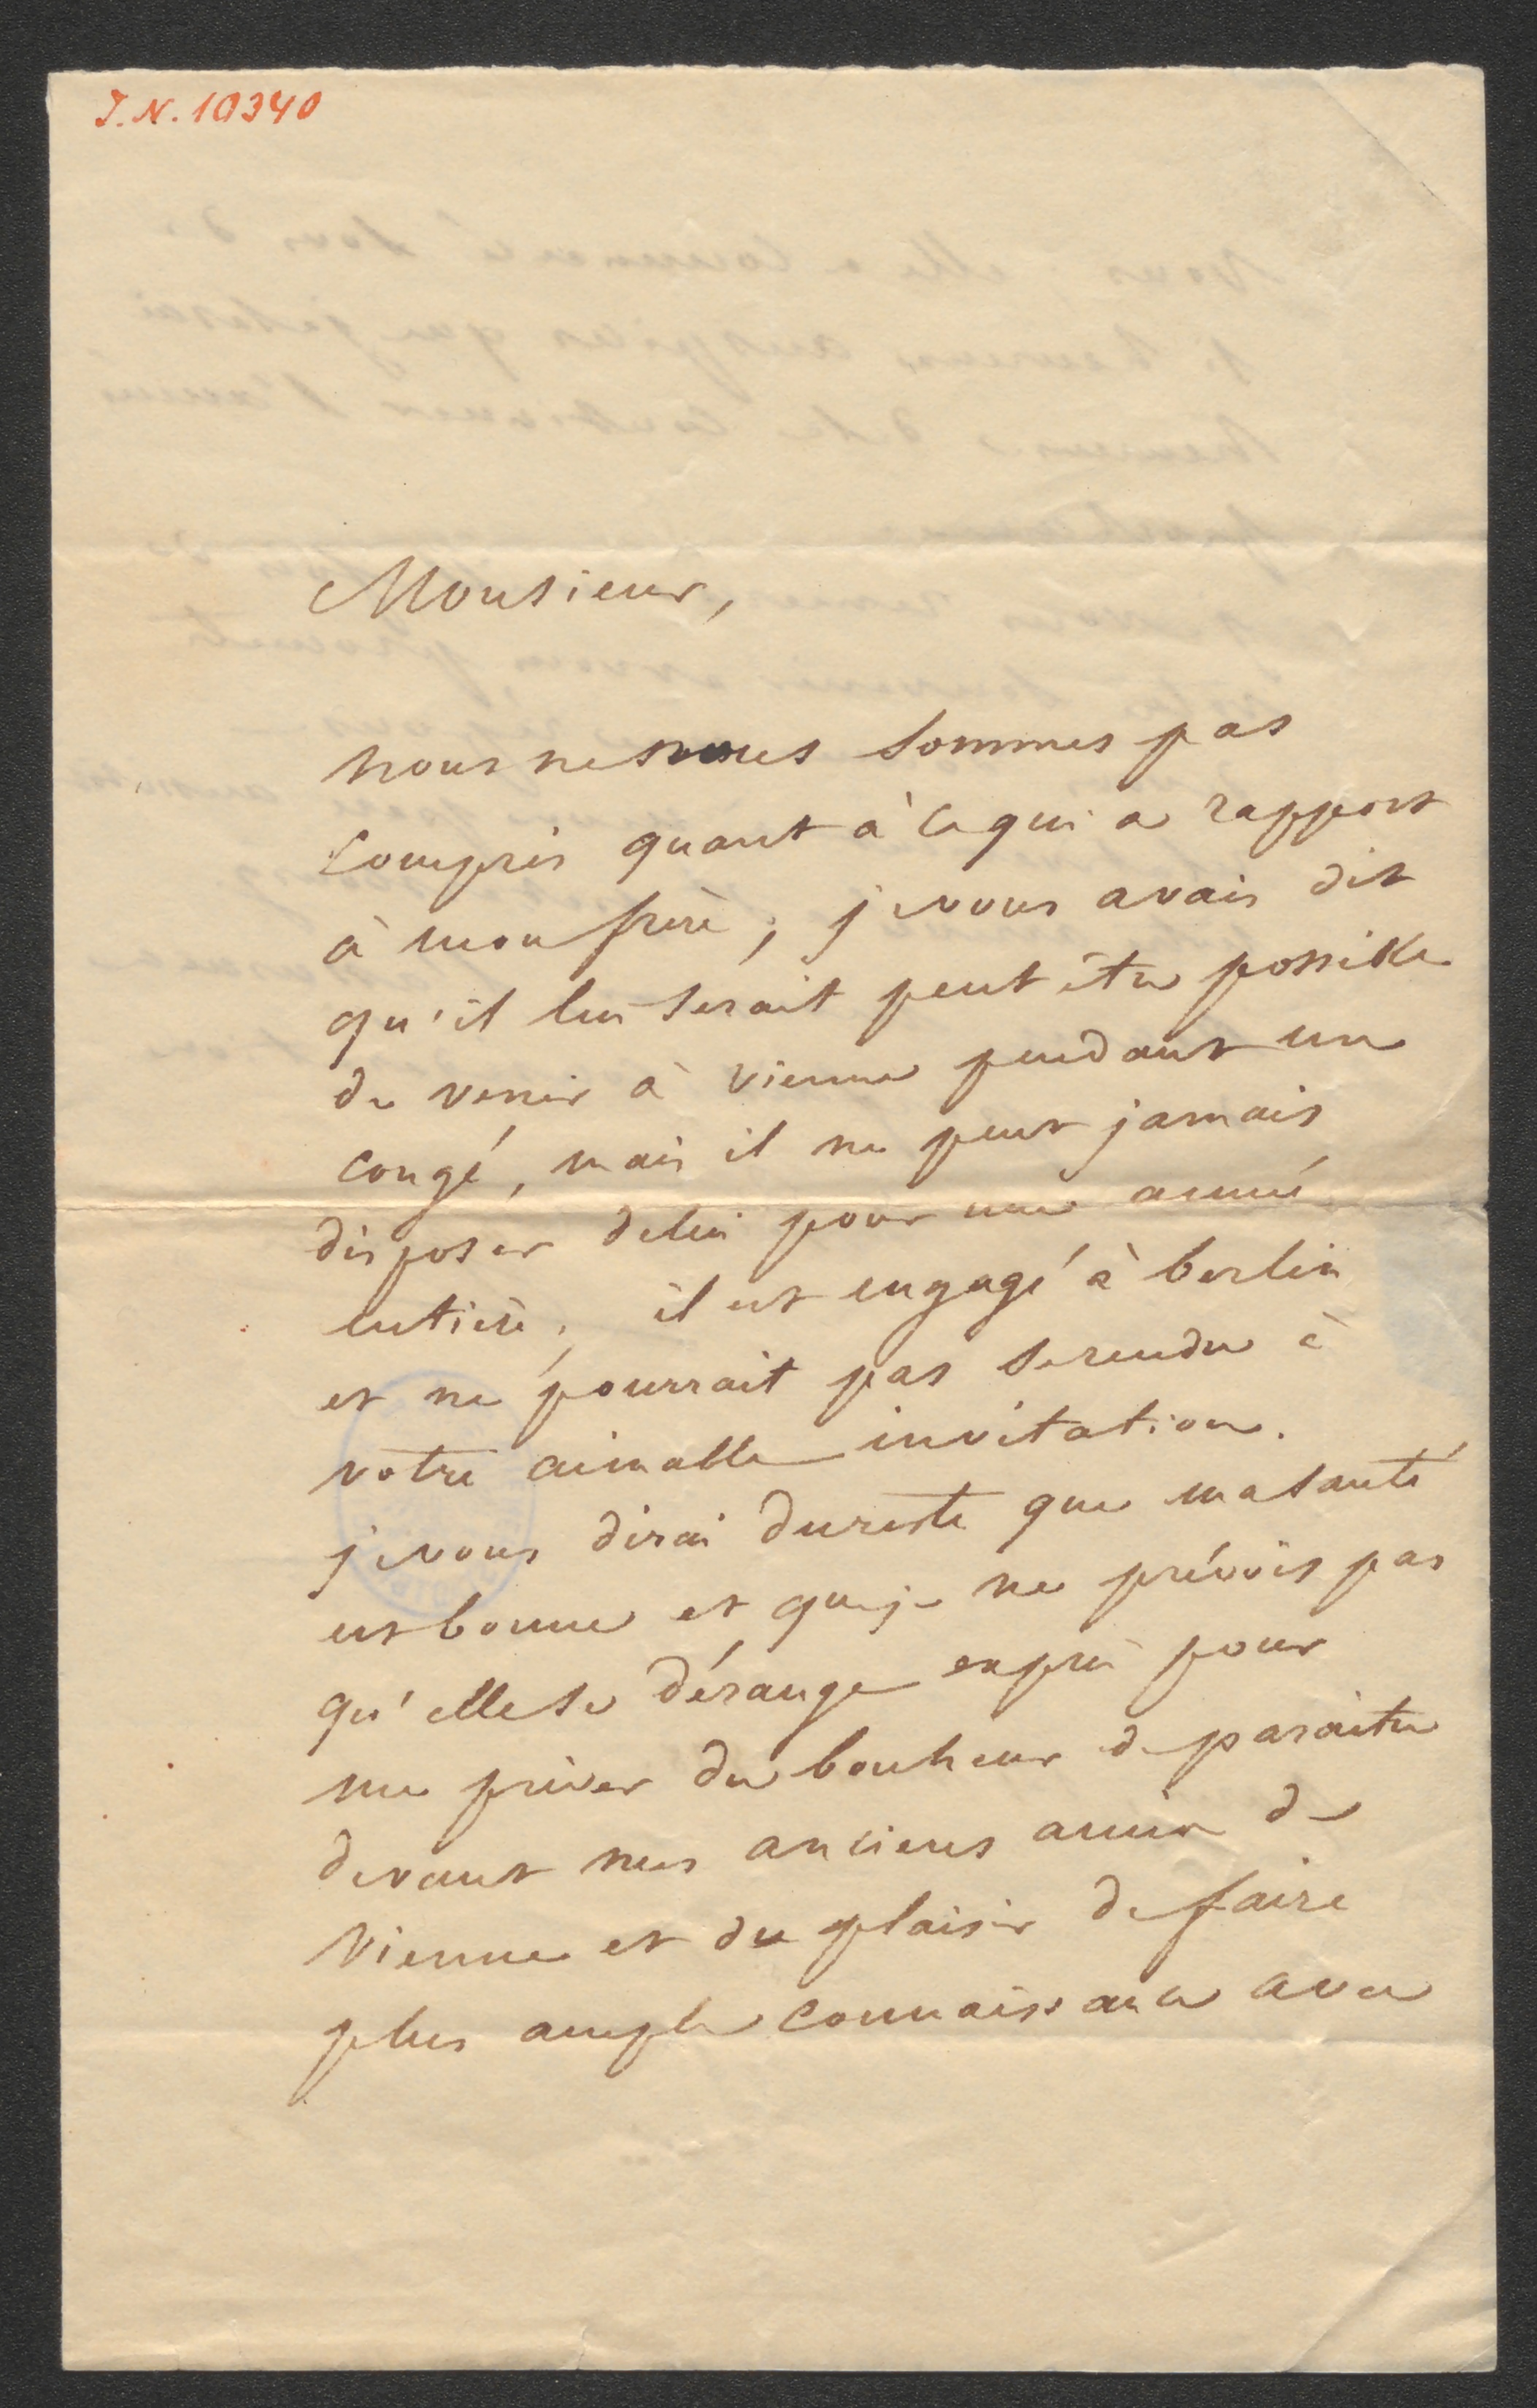 J.N. 10340
Monsieur,
nous ne nous sommes pas
compris quant à ce qui a rapport
à mon frère, je vous avais dit
qu'il lui serait peut être possible
de venir à vienne pendant un
congé, mais il ne peut jamais
disposer de lui pour une année
entière, il est engagé à berlin
et ne pourrait pas se rendre à
votre aimable invitation.
je vous dirai du reste que ma santé
est bonne et que je ne prévois pas
qu'elle se dérange exprès pour
me priver du bonheur de paraitre
devant mes anciens amis de
Vienne et du plaisir de faire
plus ample connaissance avec